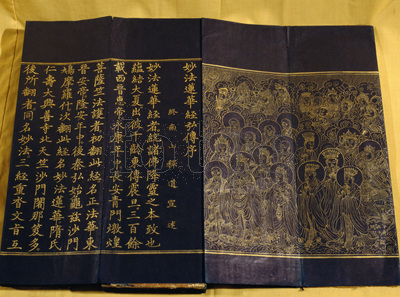 妙法蓮華經弘傳序
終南山釋道宣述
妙法蓮華經者統諸佛降靈之本致也
蘊結大夏出彼千齡東傳震旦三百餘
載西晉惠帝永康年中長安青門燉煌
菩薩竺法護者初翻此經名正法華東
晉安帝隆安年中後秦弘始龜茲沙門
鳩摩羅什次翻此經名妙法蓮華隋氏
仁壽大興善寺北天竺沙門闍那笈多
後所翻者同名妙法三經重沓文旨互